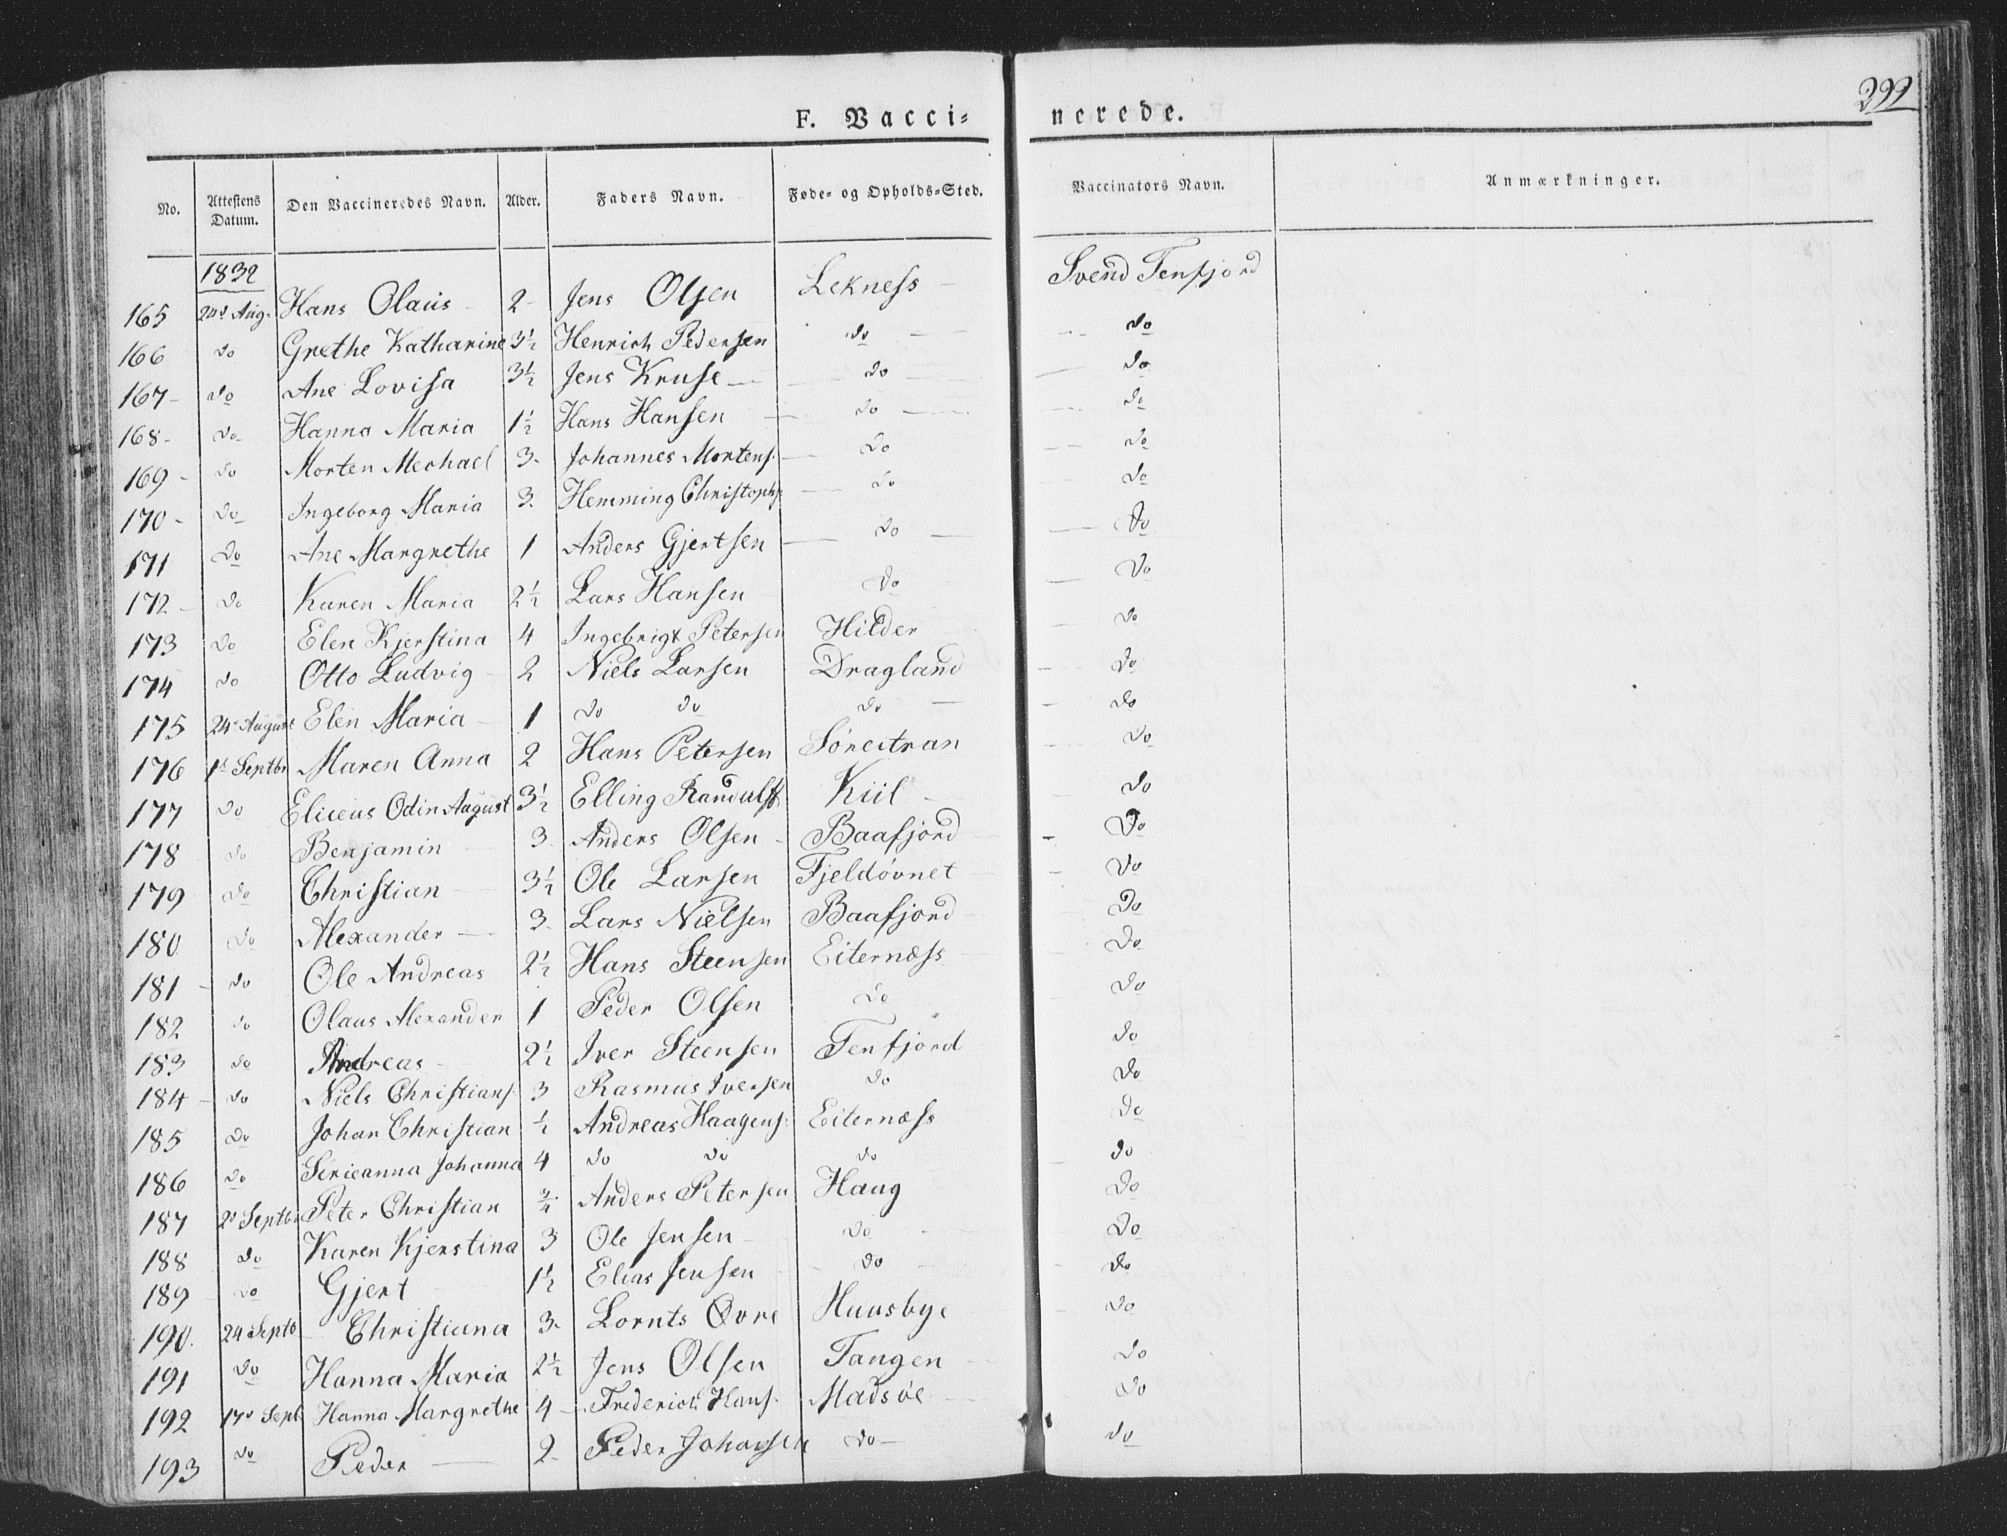 299
F. Vacci= nerede.
No. Attestens Datum. Den Vaccineredes Navn. Alder. Faders Navn. Føde- og Opholds-Sted. Vaccinators Navn. Anmærkninger.
1832
165 24d Aug. Hans Olaus 2 Jens Olsen Lekness Svend Tenfjord
166 do Grethe Katharine 3½ Henrich Pedersen do do
167 do Ane Lovisa 3½ Jens Kruse do do
168 do Hanna Maria 1½ Hans Hansen do do
169 do Morten Mechael 3 Johannes Mortens. do do
170 do Ingeborg Maria 3 Hemming Christophs. do do
171 do Ane Margrethe 1 Anders Gjertsen do do
172 do Karen Maria 2½ Lars Hansen do do
173 do Elen Kjerstina 4 Ingebrigt Petersen Hilder do
174 do Otto Ludvig 2 Niels Larsen Dragland do
175 24d August Elen Maria 1 do do do do
176 1d Septbr Maren Anna 2 Hans Petersen Sørestran do
177 do Eliceus Odin August 3½ Elling Randulff Kiil do
178 do Benjamin 3 Anders Olsen Baafjord do
179 do Christian 3½ Ole Larsen Fjeldøvnet do
180 do Alexander 3 Lars Nielsen Baafjord do
181 do Ole Andreas 2½ Hans Steensen Eiternæss do
182 do Olaus Alexander 1 Peder Olsen do do
183 do Andreas 2½ Iver Steensen Tenfjord do
184 do Niels Christians. 3 Rasmus Iversen do do
185 do Johan Christian ½ Andreas Haagens. Eiternæss do
186 do Serieanna Johanna 4 do do do do
187 2d Septbr Peter Christian ¾ Anders Petersen Haug do
188 do Karen Kjerstina 3 Ole Jensen do do
189 do Gjert 1½ Elias Jensen do do
190. 24d Septb Christiana 3 Lornts Øvre Huusbye do
191 do Hanna Maria 2½ Jens Olsen Tangen do
192 17d Sept. Hanna Margrethe 4 Frederich Hans. Madsøe do
193 do Peder 2 Peder Johansen do do